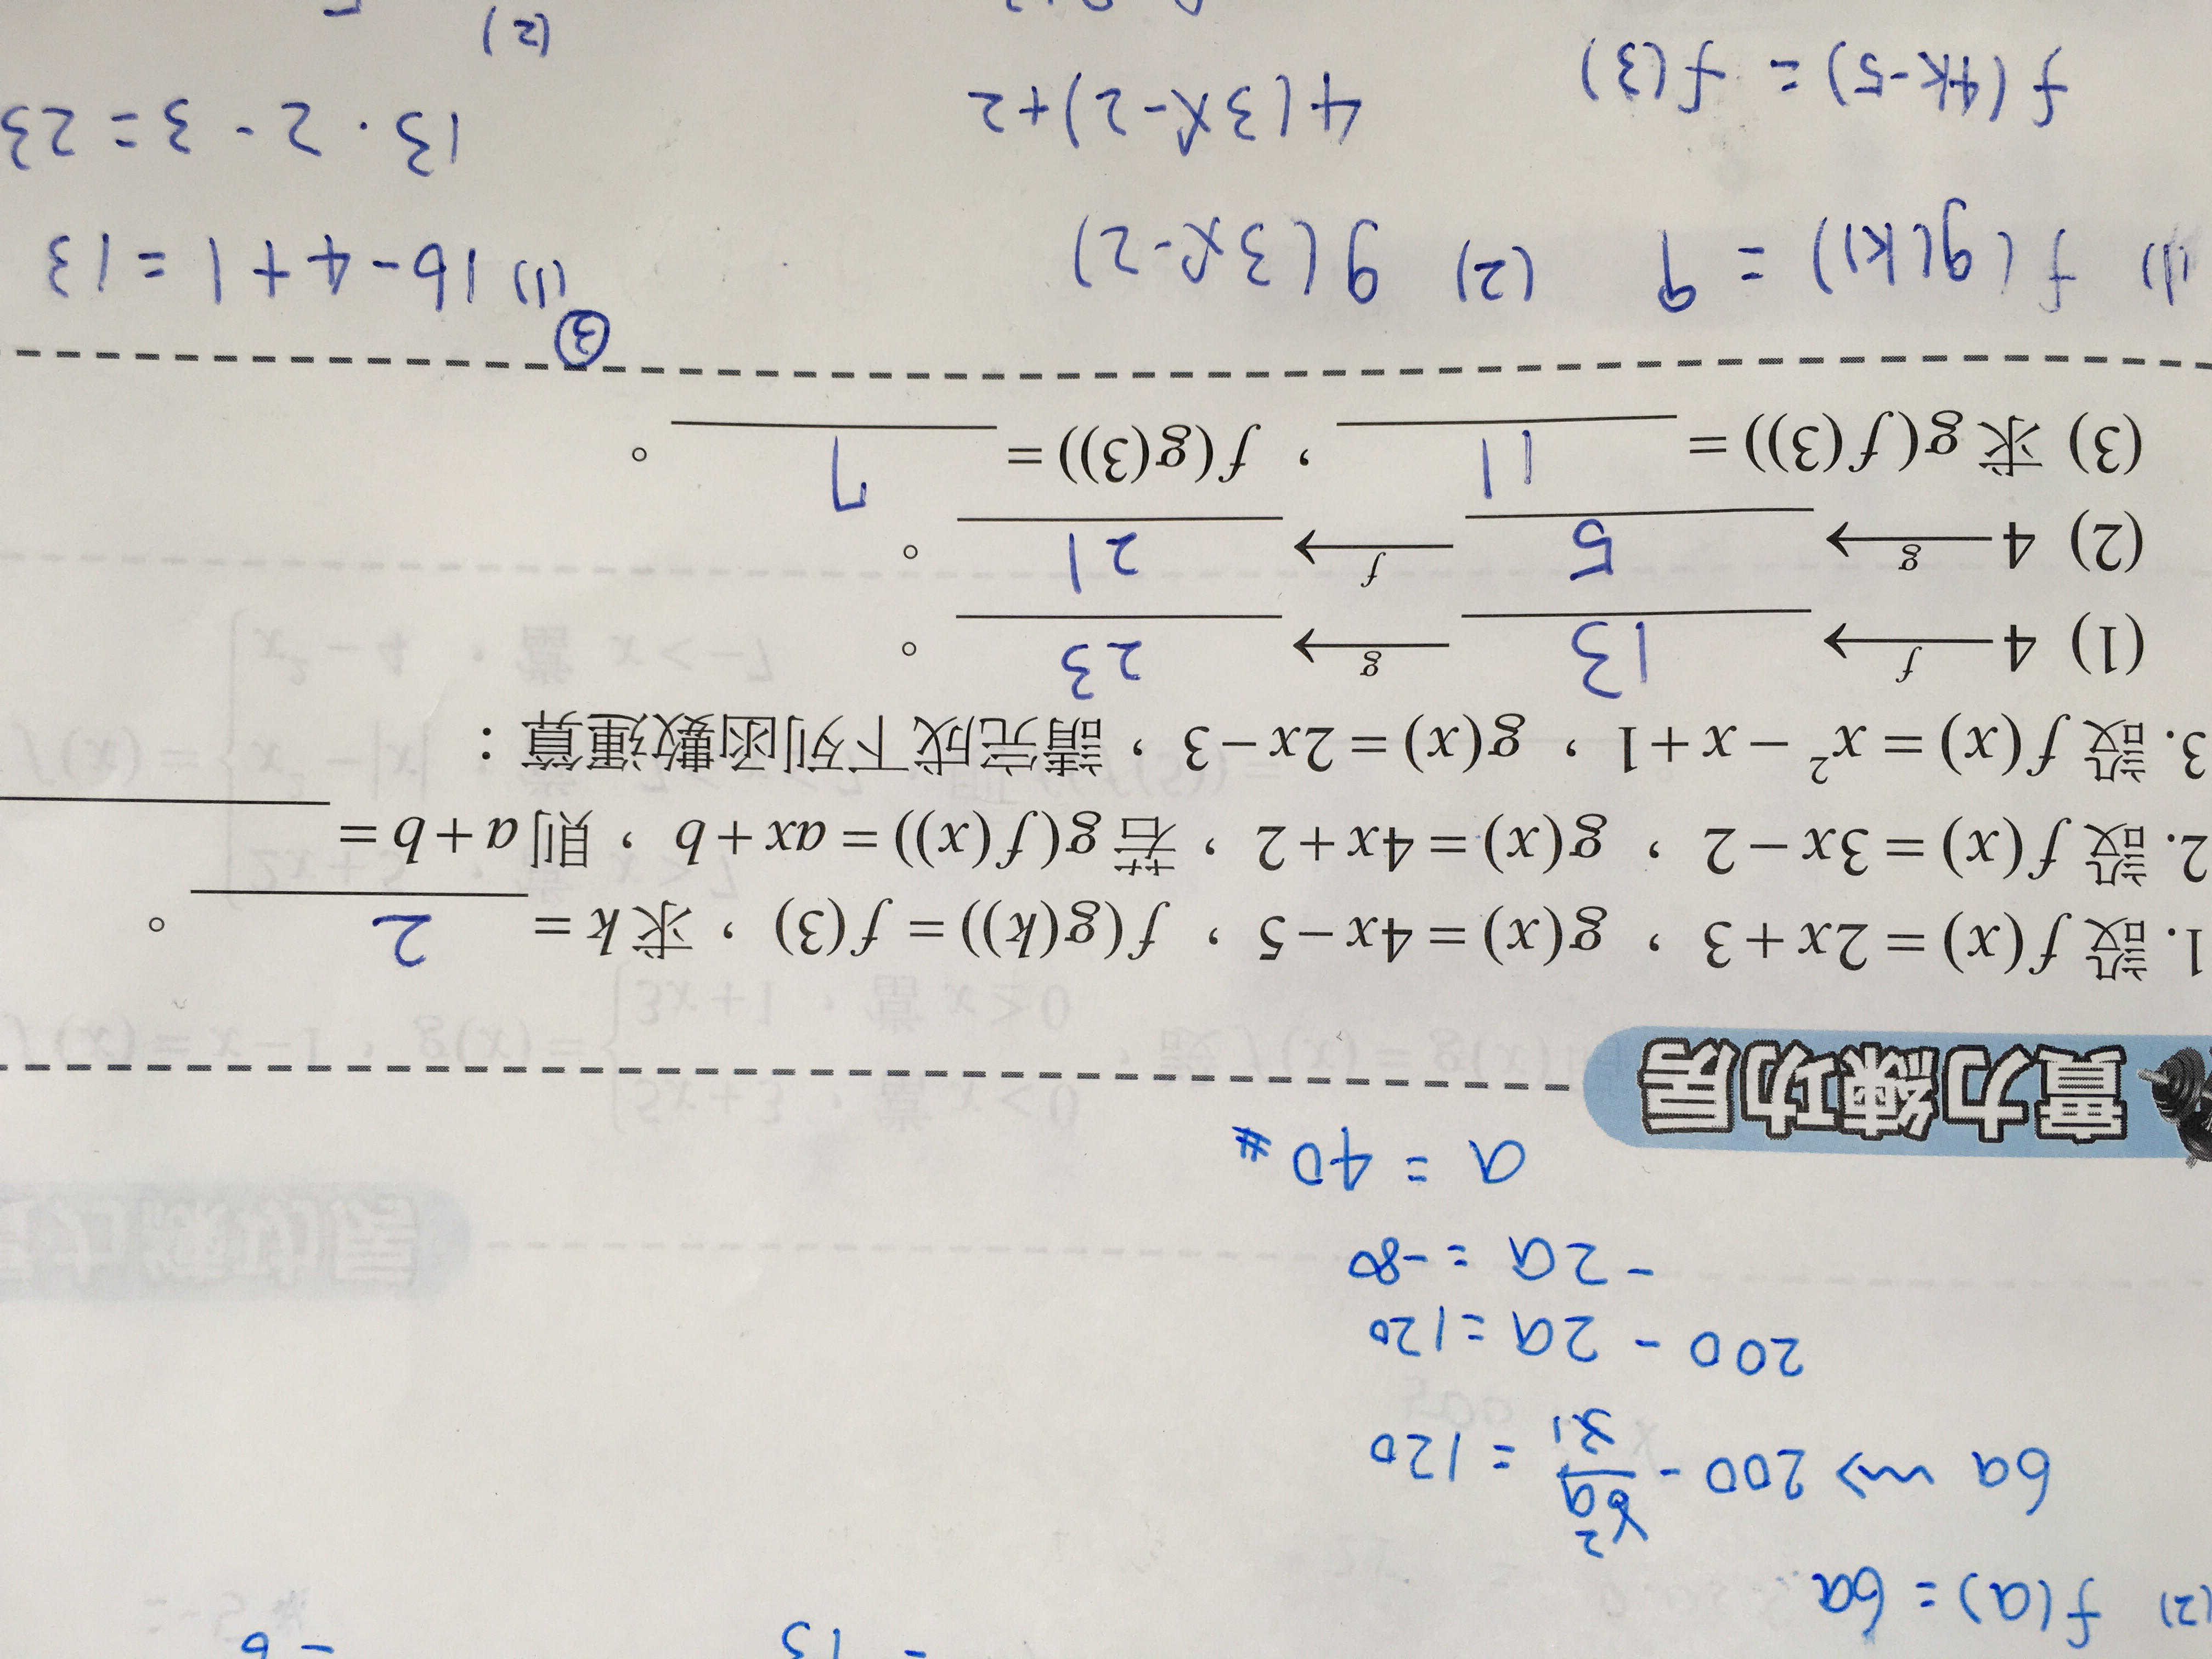 (2) f(a) = 6a
6a ⇝ 200 - 6a/3 = 120
200 - 2a = 120
-2a = -80
a = 40 #
實力練功房
1. 設 f(x) = 2x + 3，g(x) = 4x - 5，f(g(k)) = f(3)，求 k = 2。
2. 設 f(x) = 3x - 2，g(x) = 4x + 2，若 g(f(x)) = ax + b，則 a + b =
3. 設 f(x) = x² - x + 1，g(x) = 2x - 3，請完成下列函數運算：
(1) 4 —f→ 13 —g→ 23。
(2) 4 —g→ 5 —f→ 21。
(3) 求 g(f(3)) = 11，f(g(3)) = 7。
(1) f(g(k)) = 9 (2) g(3x-2) ③ (1) 16-4+1 = 13
f(4k-5) = f(3) 4(3x-2)+2 13·2-3 = 23
(2)